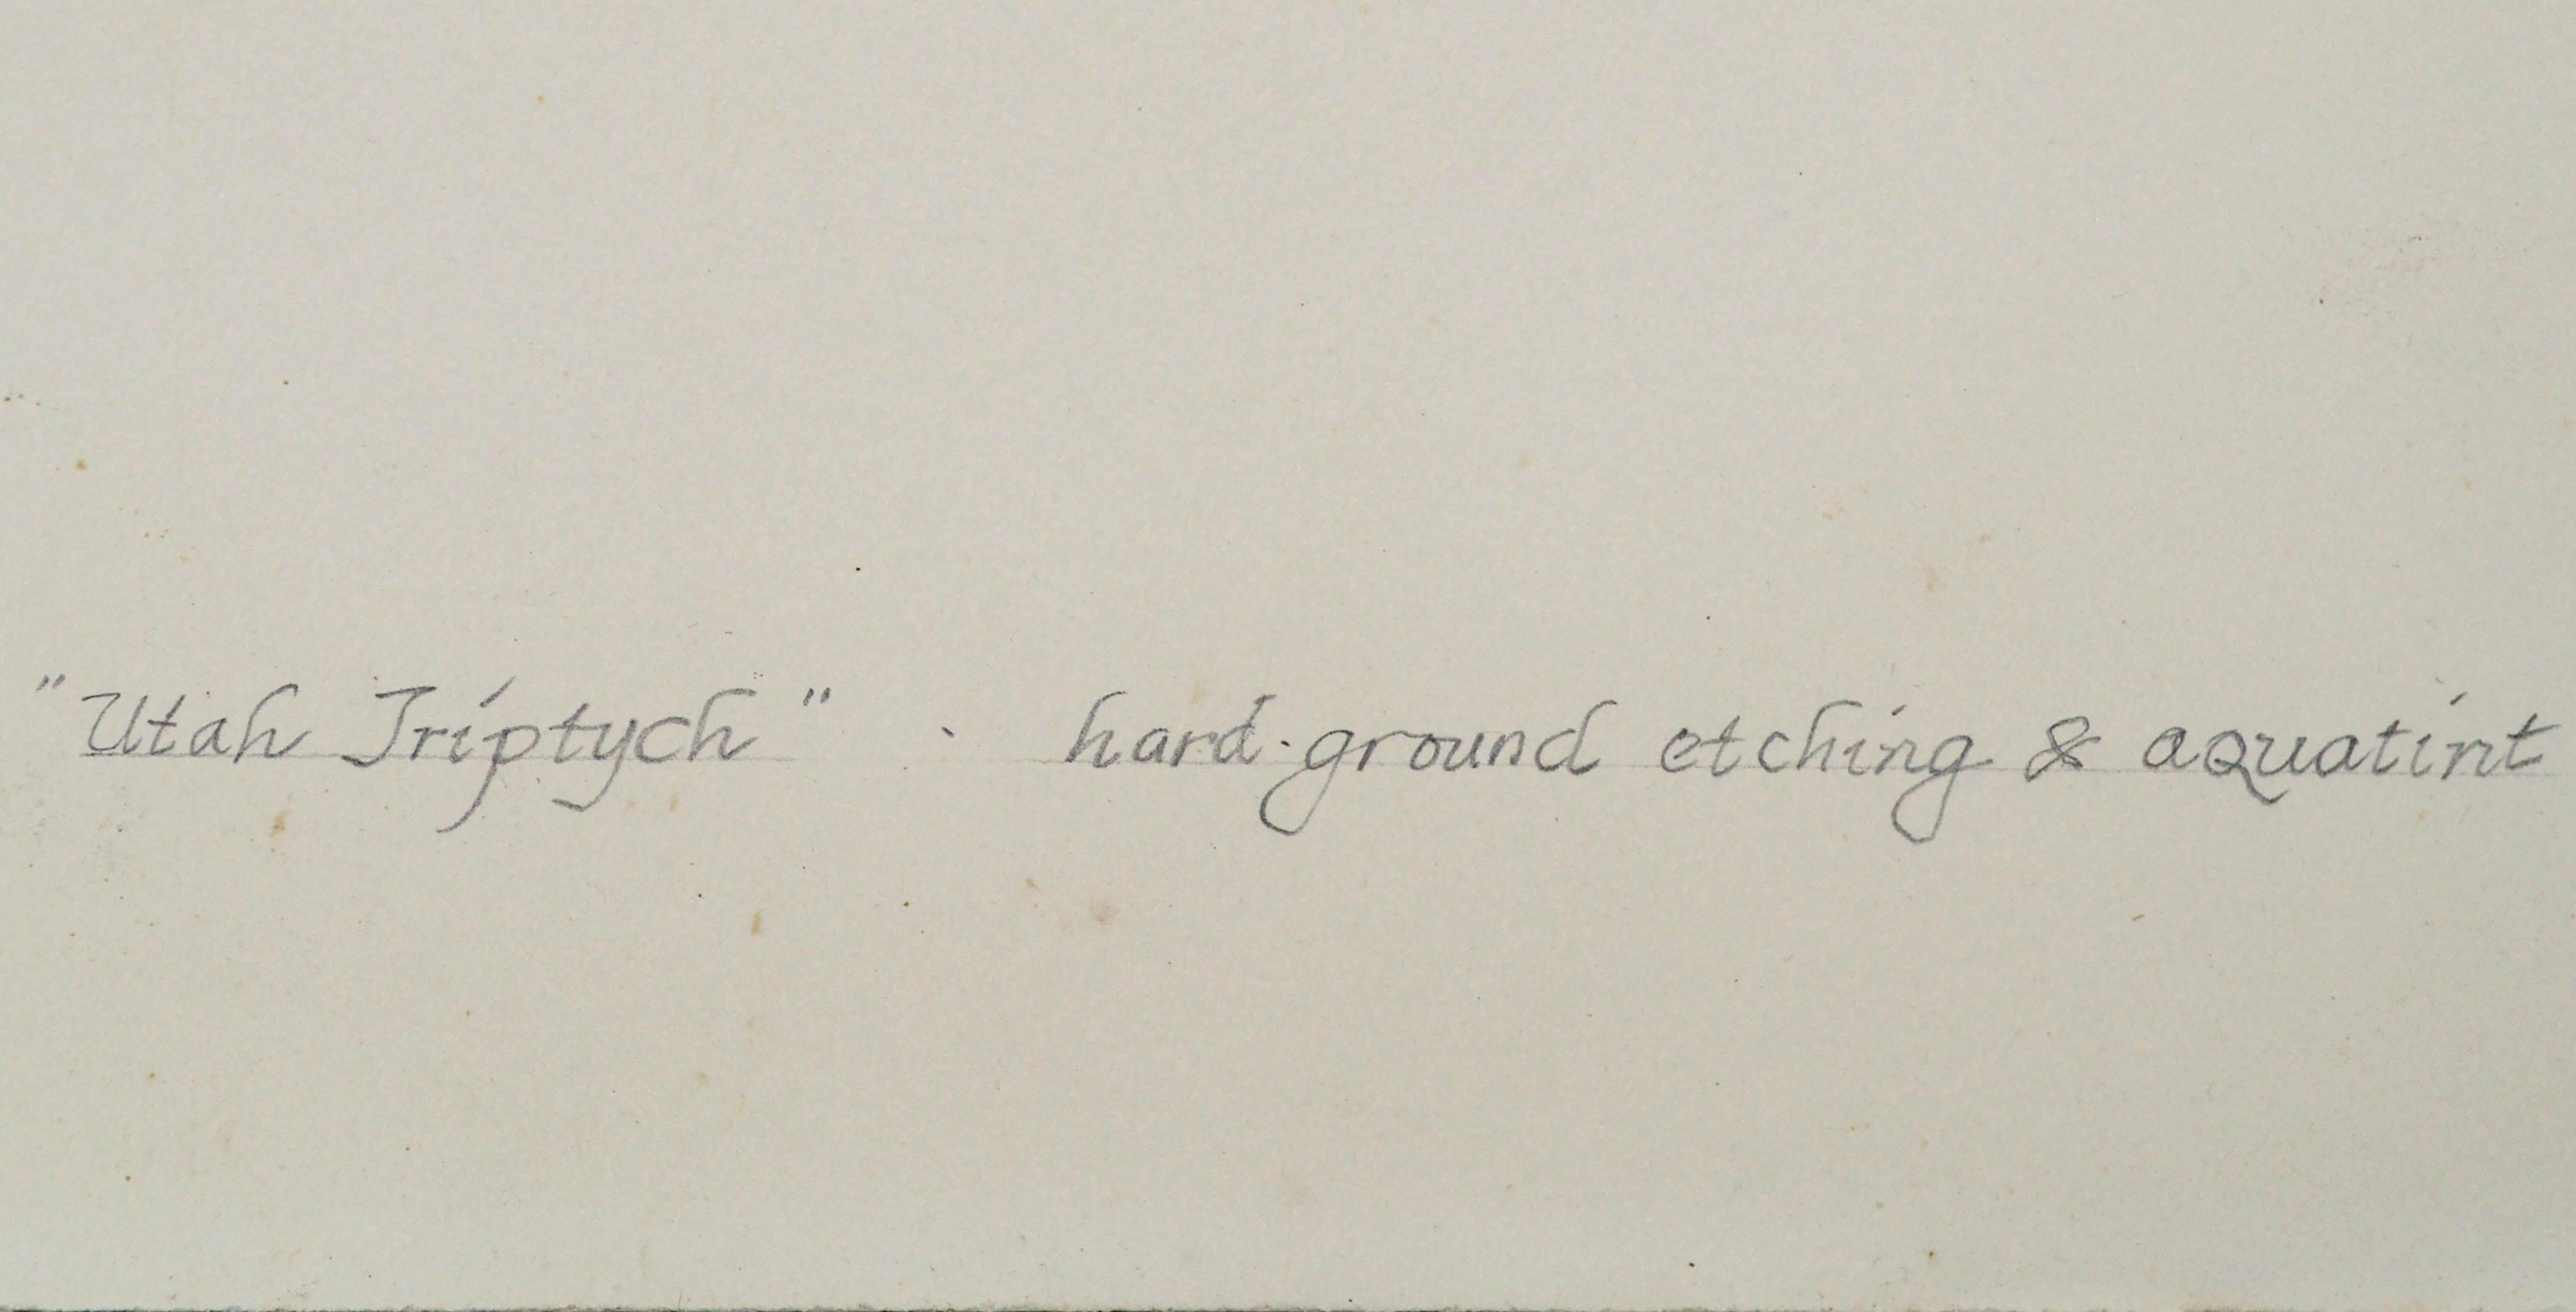 "Utah Triptych" · hard-ground etching & aquatint